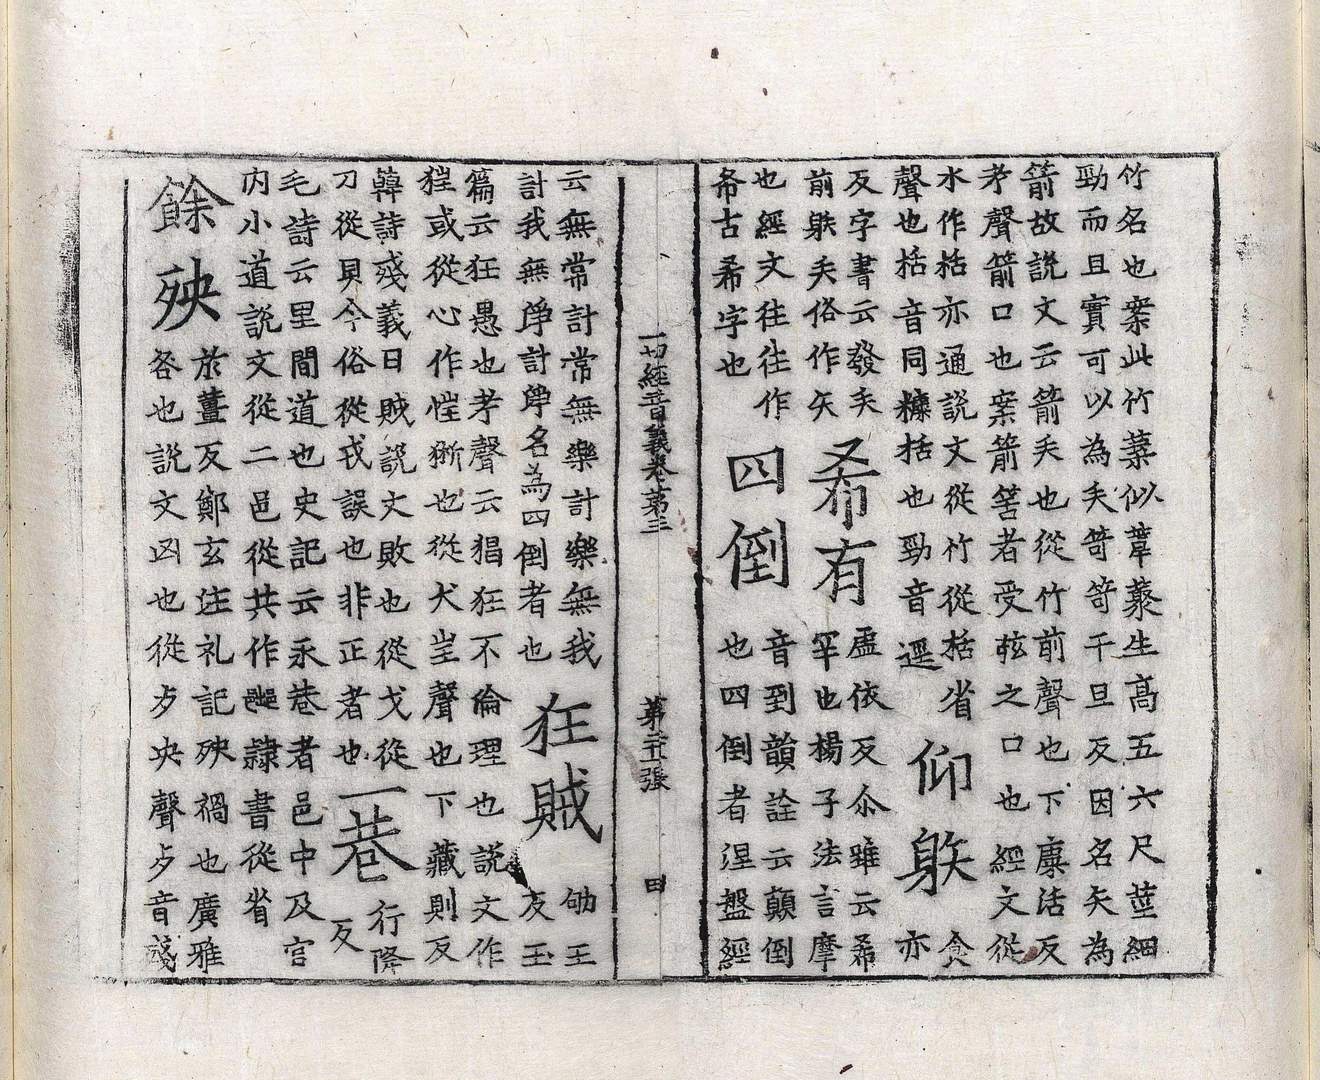 竹名也案此竹葉似葦叢生高五六尺莖細
勁而且實可以為矢笴笴干旦反因名矢為
箭故說文云箭矢也從竹前聲也下康活反
考聲箭口也案箭筈者受弦之口也經文從
水作栝亦通說文從竹從栝省
聲也栝音同檃栝也勁音逕
仰䠶
食
亦
反字書云發矢
前䠶矢俗作矢
希有
虛依反尒雅云希
罕也楊子法言摩
也經文往往作
希古希字也
四倒
音到韻詮云顛倒
也四倒者涅盤經
一切經音義卷第三 第 張 田
云無常計常無樂計樂無我
計我無淨計淨名為四倒者也
狂賊
劬王
反玉
篇云狂愚也考聲云猖狂不倫理也說文作
狴或從心作㤮獗也從犬㞷聲也下藏則反
韓詩殘義曰賊說文敗也從戈從
刀從貝今俗從戎誤也非正者也
一巷
行降
反
毛詩云里間道也史記云永巷者邑中及宮
內小道說文從二邑從共作䢽隸書從省
餘殃
於薑反鄭玄注礼記殃禍也廣雅
咎也說文凶也從歹央聲歹音殘